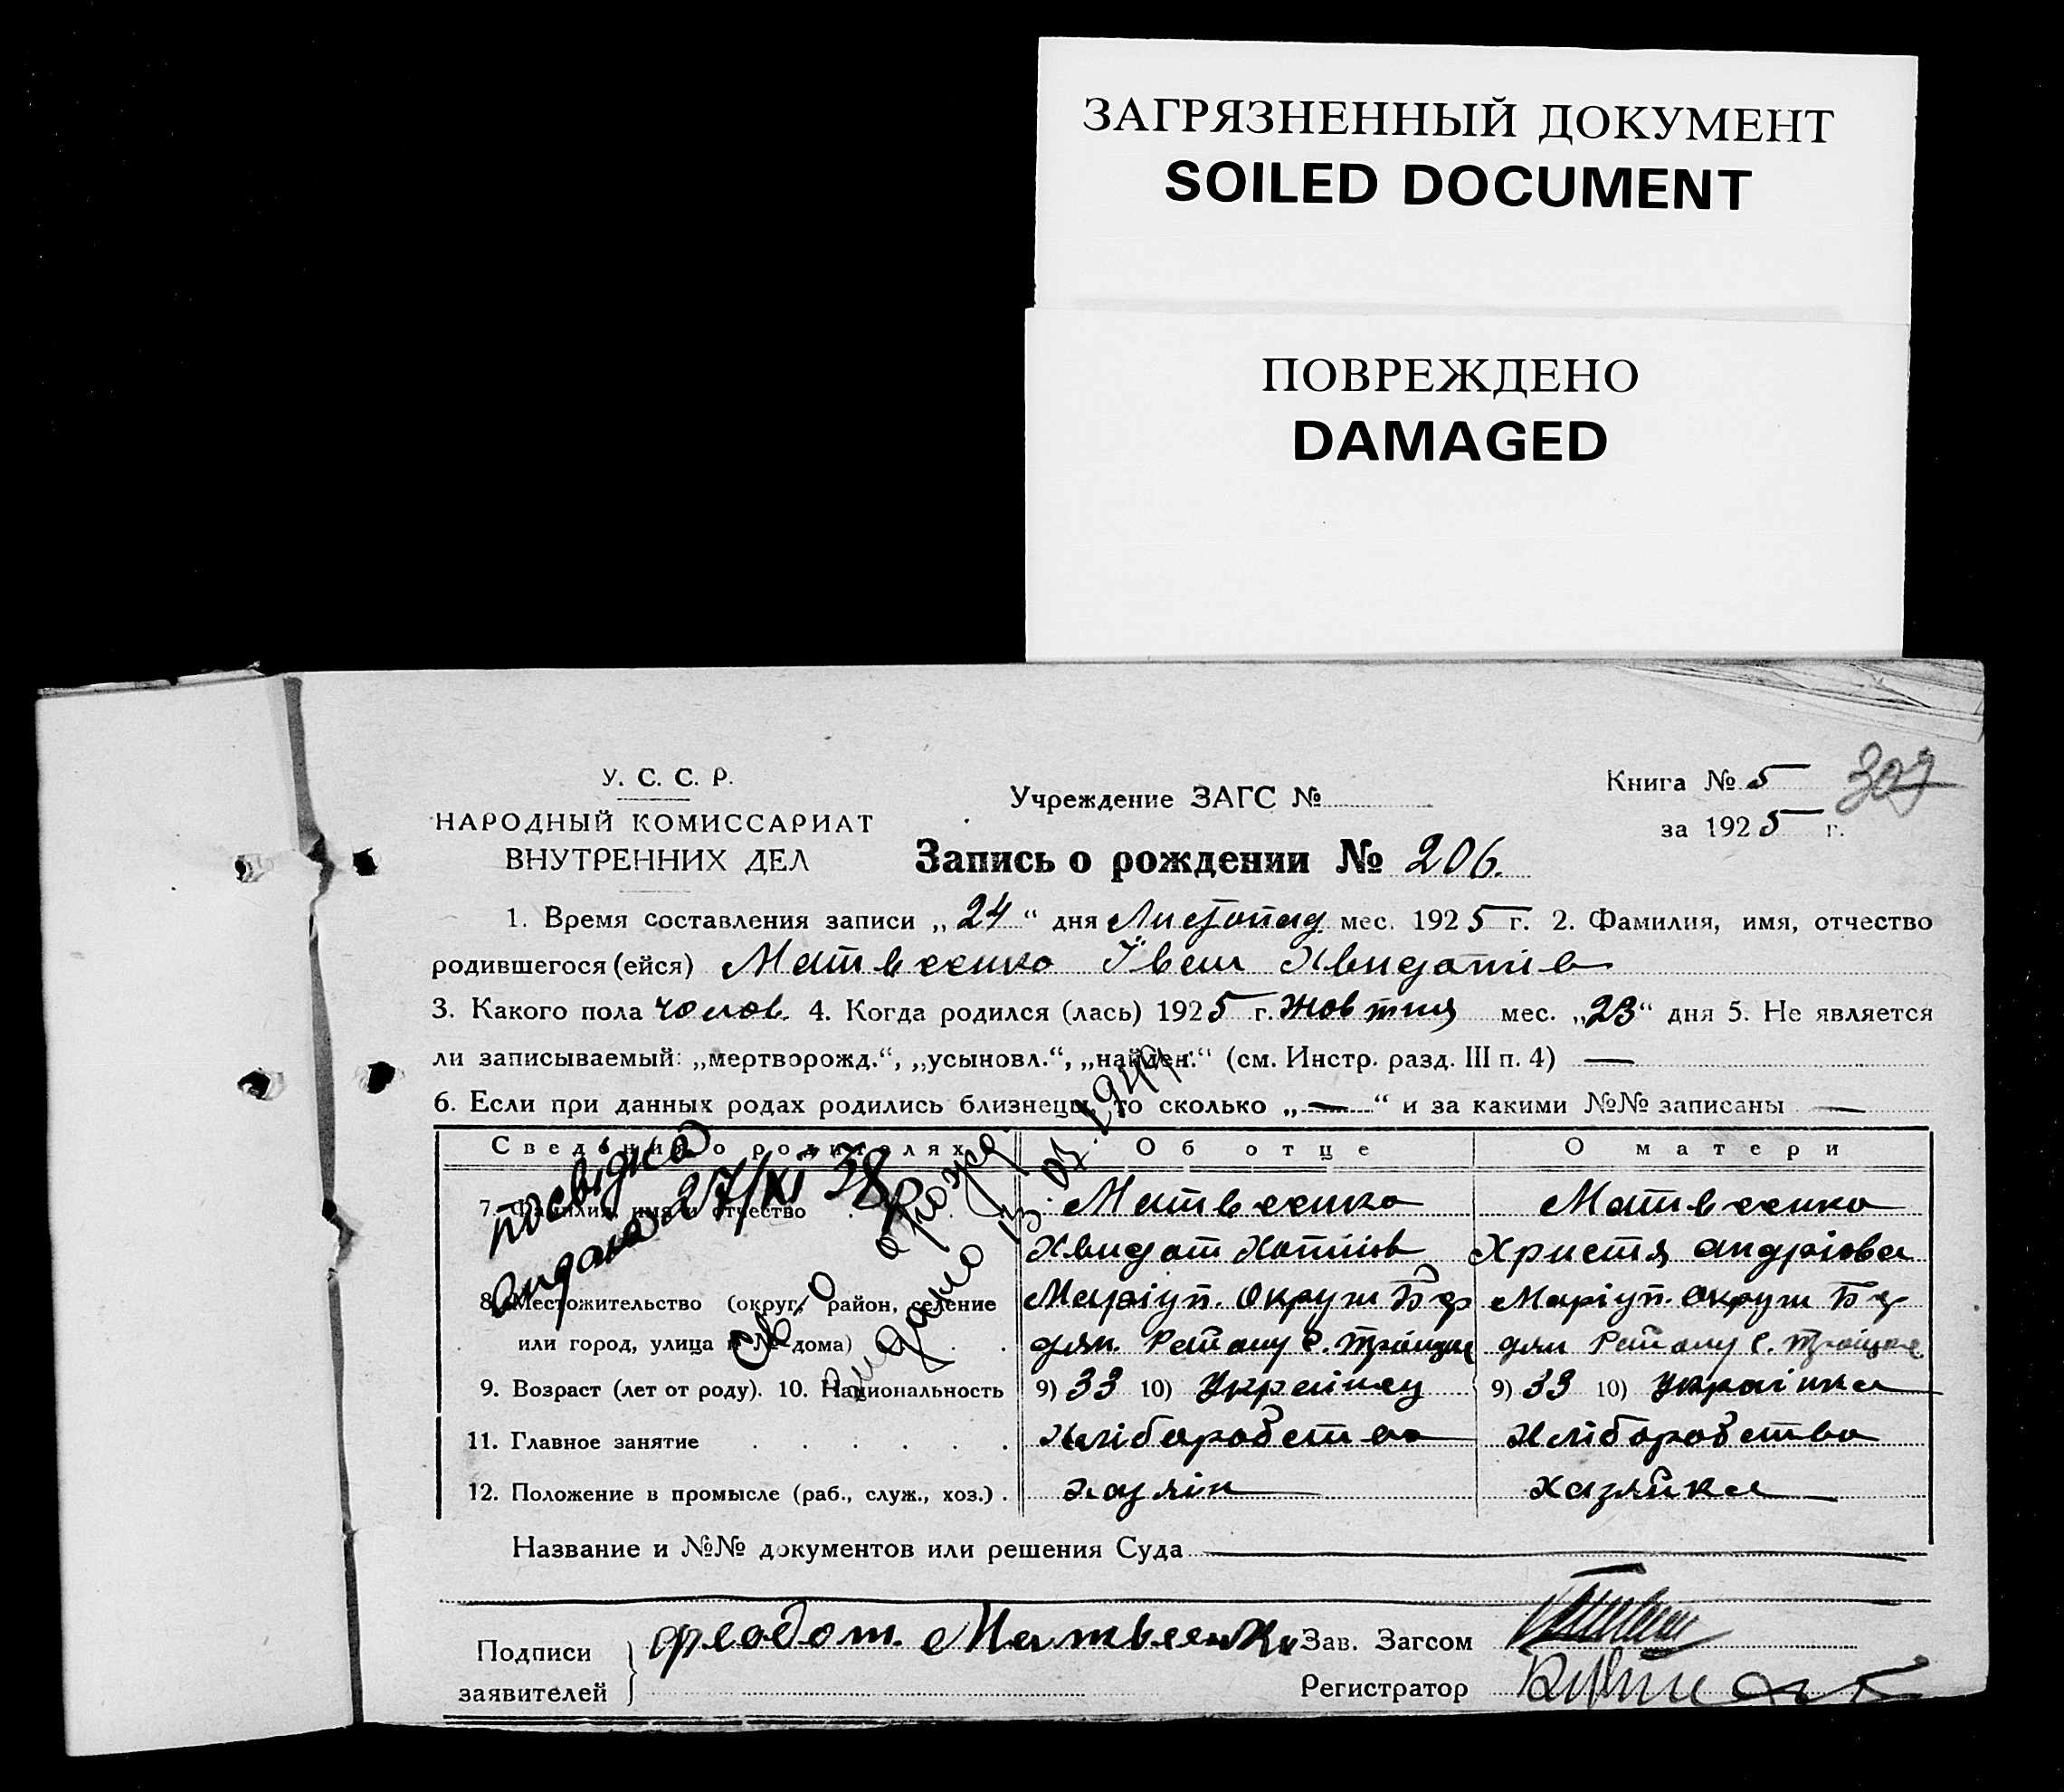 ЗАГРЯЗНЕННЫЙ ДОКУМЕНТ
SOILED DOCUMENT
ПОВРЕЖДЕНО
DAMAGED
У. С. С. Р.
НАРОДНЫЙ КОМИССАРИАТ
ВНУТРЕННИХ ДЕЛ
Учреждение ЗАГС №
Книга № 5
309
за 1925 г.
Запись о рождении № 206.
1. Время составления записи „24“ дня Листопад мес. 1925 г. 2. Фамилия, имя, отчество
родившегося (ейся) Матвеенко Іван Хвидотів
3. Какого пола чолов. 4. Когда родился (лась) 1925 г. Жовтня мес. „23“ дня 5. Не является
ли записываемый: „мертворожд.“, „усыновл.“, „найден.“ (см. Инстр. разд. III п. 4) —
6. Если при данных родах родились близнецы, то сколько „—“ и за какими №№ записаны —
Сведения о родителях
Об отце
О матери
7. Фамилия, имя и отчество
Матвеенко
Матвеенко
Хвидот
Христя Андріева
8. Местожительство (округ, район, селение
Маріуп. Округи Бер
Маріуп. Округи Бер
или город, улица и № дома)
дян. Району с. Троицке
дян Району с. Троицке
9. Возраст (лет от роду). 10. Национальность
9) 33 10) Українец
9) 33 10) Українка
11. Главное занятие
Хліборобство
Хліборобство
12. Положение в промысле (раб., служ., хоз.)
хазяін
хазяйка
Название и №№ документов или решения Суда
посвідка
видана 27/XI 38
Св-о о рожд.
выдано 13. 1944
Подписи
заявителей
Феодот Матвеенко
Зав. Загсом
Регистратор